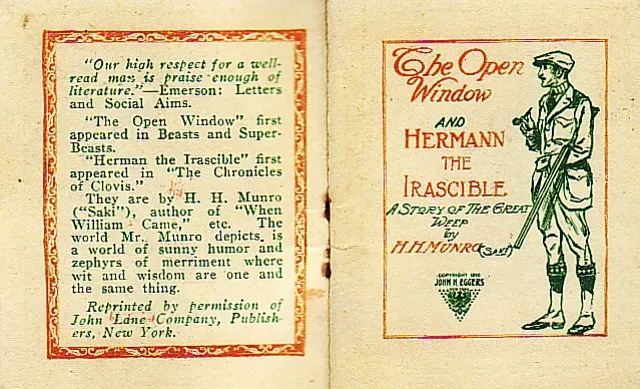 "Our high respect for a well-
read man is praise enough of
literature."—Emerson: Letters
and Social Aims.
"The Open Window" first
appeared in Beasts and Super-
Beasts.
"Herman the Irascible" first
appeared in "The Chronicles
of Clovis."
They are by H. H. Munro
("Saki"), author of "When
William Came," etc. The
world Mr. Munro depicts is
a world of sunny humor and
zephyrs of merriment where
wit and wisdom are one and
the same thing.
Reprinted by permission of
John Lane Company, Publish-
ers, New York.
The Open
Window
AND
HERMANN
THE
IRASCIBLE
A STORY OF THE GREAT
WEEP
by
H. H. MUNRO (SAKI)
COPYRIGHT
JOHN H. EGGERS